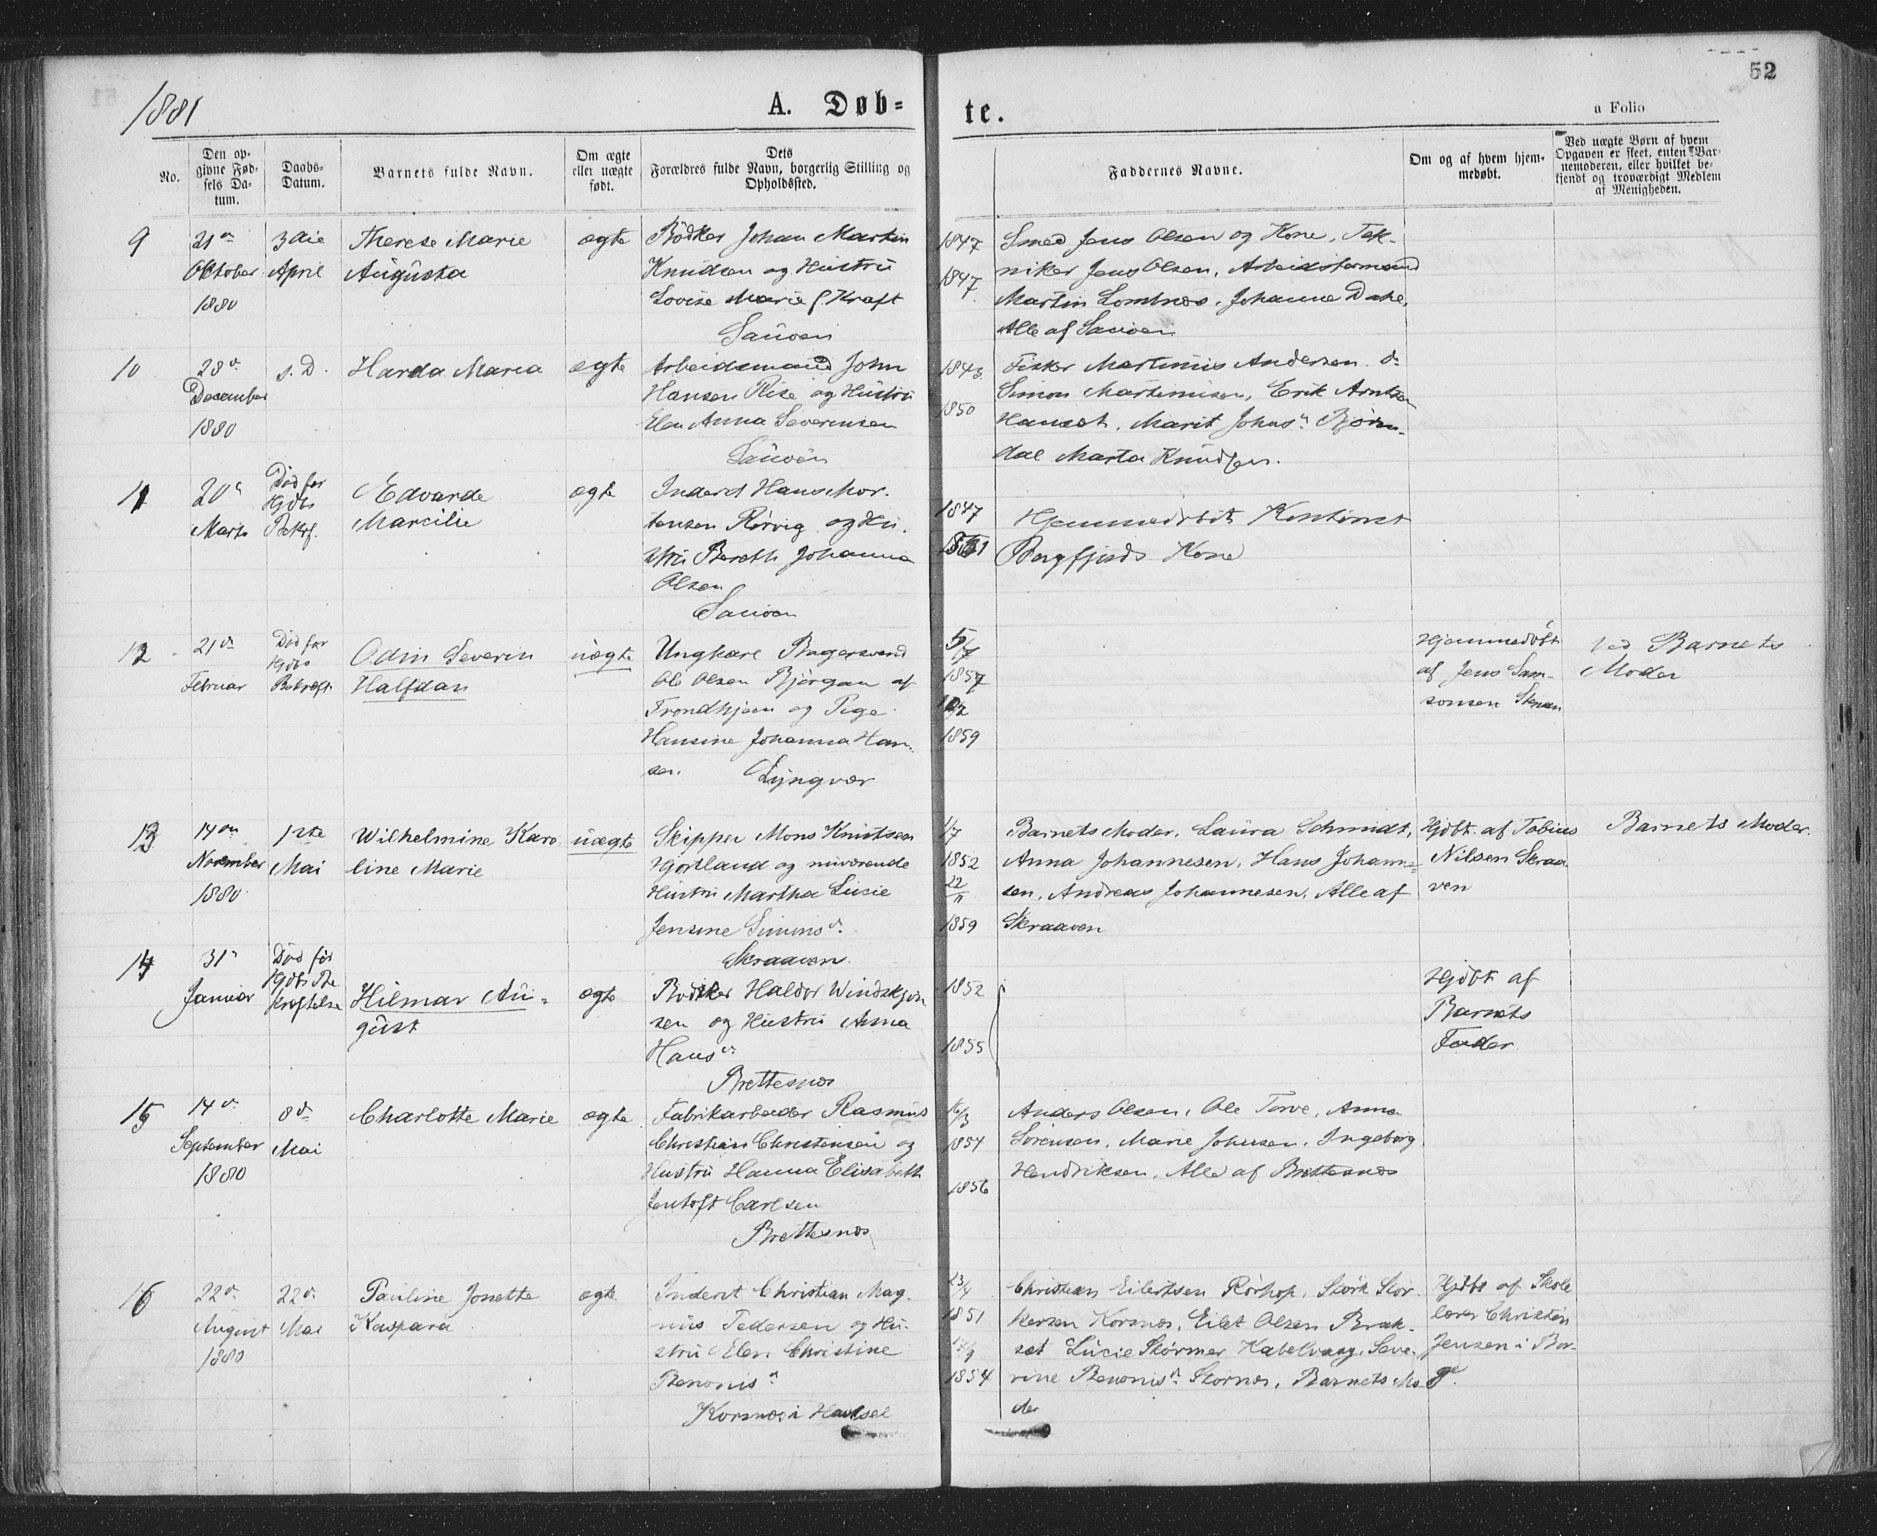 1881
A. Døb=
te.
52
a Folio
No.
Den op-
givne Fød-
sels Da-
tum.
Daabs-
Datum.
Barnets fulde Navn.
Om ægte
eller uægte
født.
Dets
Forældres fulde Navn, borgerlig Stilling og
Opholdssted.
Faddernes Navne.
Om og af hvem hjem-
medøbt.
Ved uægte Børn af hvem
Opgaven er skeet, enten Bar-
nemoderen, eller hvilket be-
kjendt og troværdigt Medlem
af Menigheden.
9
21de
Oktober
1880
3die
April
Therese Marie
Augusta
ægte
Bödker Johan Martin
Knudsen og Hustru
Lovise Marie f Kraft
1847
1847
Smed Jens Olsen og Kone, Tek-
niker Jens Olsen, Arbeidsformand
Martin Lomtnes, Johanna Dahe,
Alle af
10
28de
December
1880
s. D.
Harda Maria
ægte
Arbeidsmand John
Hansen Rise og Hustru
Elen Anna Severinsen
1843
1850
Fisker Martinus Andersen do
Simon Martinusen, Erik Arntsen
Hanset, Marit Johns Bjørn-
dal Marta Knudsen.
11
20de
Marts
Død før
Hjdbs
Bekrf.
Edvarde
Marcilie
ægte
Inderst Hans Mor-
tensen Rörvig og Hu-
stru Bereth Johanna
Olsen
1847
Hjemmedøbt
Borgfjords Kone
12
21de
Februar
Død før
Hjdbs
Bekræft
Odin Severin
Halfdan
uægte
Ungkarl Bagersvend
Ole Olsen Bjørgan af
Trondhjem og Pige
Hansine Johanna Han-
sen. Lyngvær
5/7
1857
1859
Hjemmedøbt
af Jens Sam-
sonsen
ved Barnets
Moder
13
14de
November
1880
1ste
Mai
Wilhelmine Karo
line Marie
uægte
Skipper Mons Knutsen
Hjortland og nuværende
Hustru Martha Lucie
Jensine Simons d.
Skraaven
1852
22/11
1859
Barnets Moder, Laura Schmidt,
Anna Johannesen, Hans Johanne-
sen, Andreas Johannesen, Alle af
Skraaven
Hjdbt. af Tobius
Nilsen Skraa
ven
Barnets Moder
14
31
Januar
Død før
Hjdbs Be
kræftelse
Hilmar Au-
gust
ægte
Bødker Haldor Windskjøn
sen og Hustru Anna
Hans d.
Brettesnæs
1852
1855
Hjdbt af
Barnets
Fader
15
14de
September
1880
8de
Mai
Charlotte Marie
ægte
Fabrikarbeider Rasmus
Christian Christensen og
Hustru Hanna Elisabeth
Jentoft Carlsen
Brettesnæs
16/3
1854
1856
Anders Olsen, Ole Torve, Anna
Sørensen, Marie Johnsen, Ingeborg
Hendriksen, Alle af Brettesnæs
16
22de
August
1880
22de
Mai
Pauline Jonette
Kaspara
ægte
Inderst Christian Mag-
nus Pedersen og Hu-
stru Elen Christine
Benonis d
Korsnæs i Hadsel
23/4
1851
1854
Christian Eilertsen Rørhop, Størk Stor-
kersen Korsnæs, Eilet Olsen Brak-
set Lucie Størmer Kabelvaag, Seve-
rine Benonis d. Stornæs, Barnets Mo
der
Hjdbt af Skole
lærer Christen
Jensen i Bor-
ge.